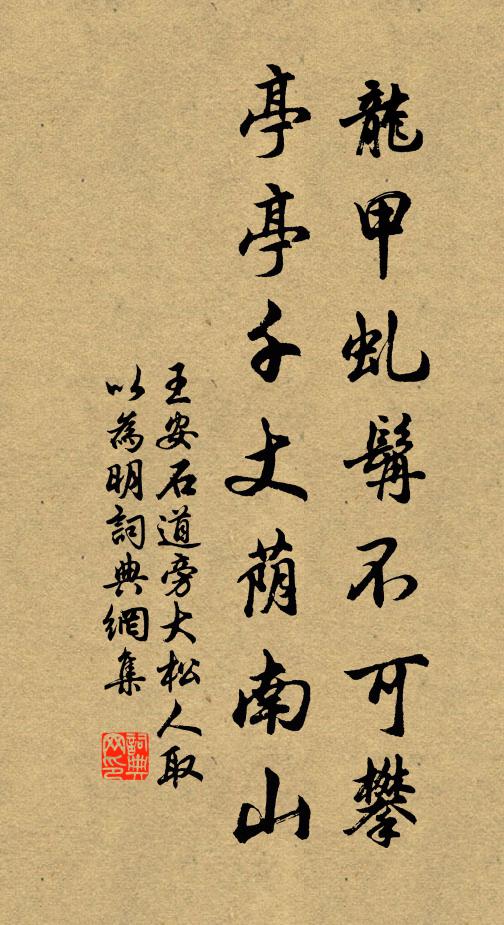 龍甲虬髯不可攀
亭亭千丈蔭南山
王安石道旁大松人取
以為明詞典網集
詞典
网印